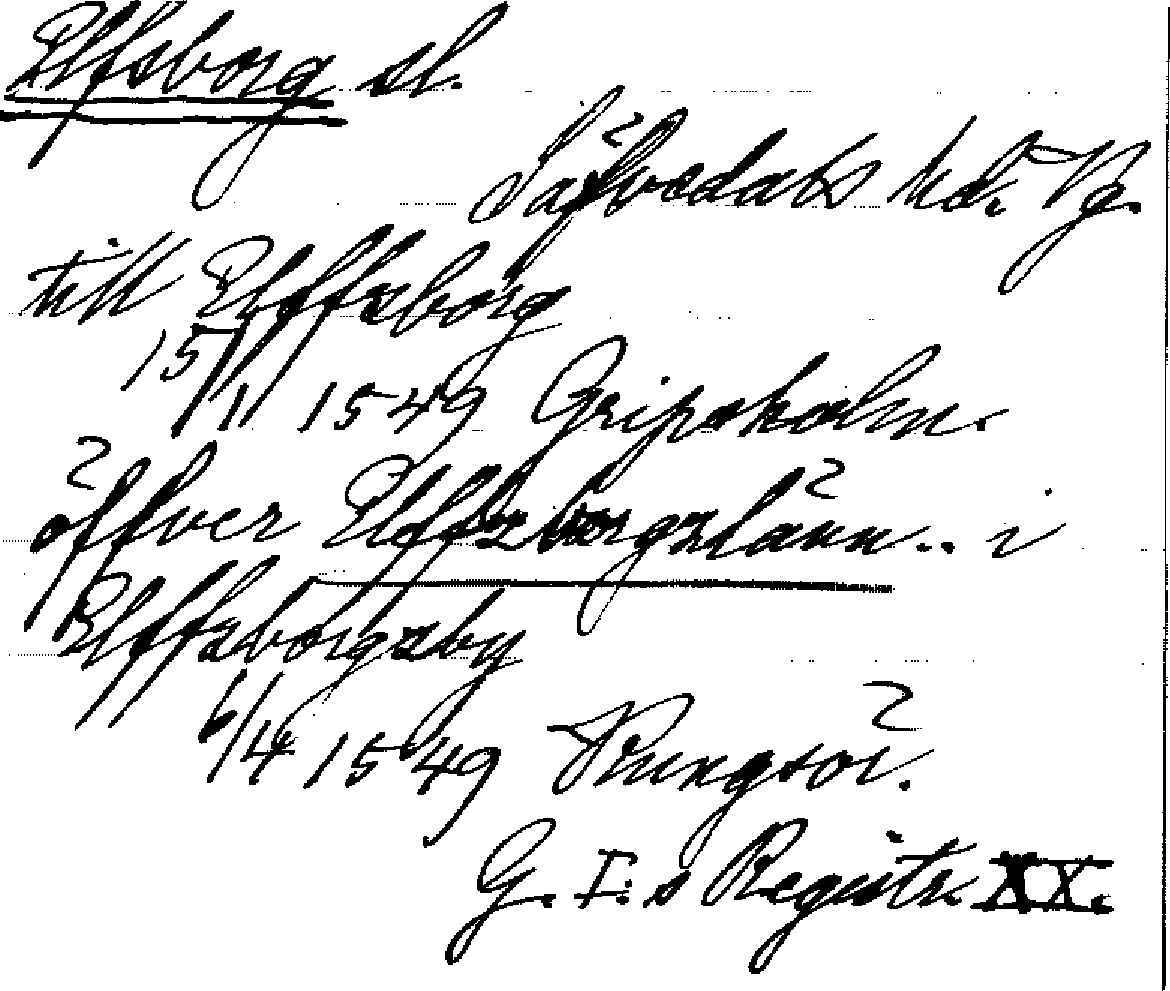 Elfsborg sl.
Säfvedals hd. Vg.
till Elffzborg
15/1 1549 Gripsholm.
öffver Elffzborgxlänn.. i
Elffzborgxby
6/4 1549 Kungsör.
G. I:s Registr. XX.